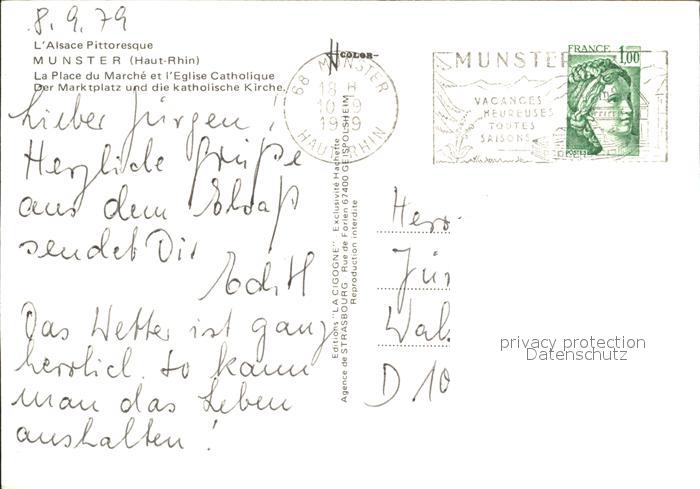 8. 9. 79
L'Alsace Pittoresque
MUNSTER (Haut-Rhin)
La Place du Marché et l'Eglise Catholique
Der Marktplatz und die katholische Kirche.
Lieber Jürgen!
Herzliche Grüße
aus dem Elsaß
sendet Dir
Edith
Das Wetter ist ganz
herrlich. So kann
man das Leben
aushalten!
COLOR
68 MUNSTER
18 H
10-9
1979
HAUT-RHIN
MUNSTER
VACANCES
HEUREUSES
TOUTES
SAISONS
FRANCE
1,00
POSTES
Editions "LA CIGOGNE" - Exclusivité Hachette
Agence de STRASBOURG - Rue de Forlen 67400 GEISPOLSHEIM
Reproduction interdite
Herr
Jür
Wal
D 10
privacy protection
Datenschutz